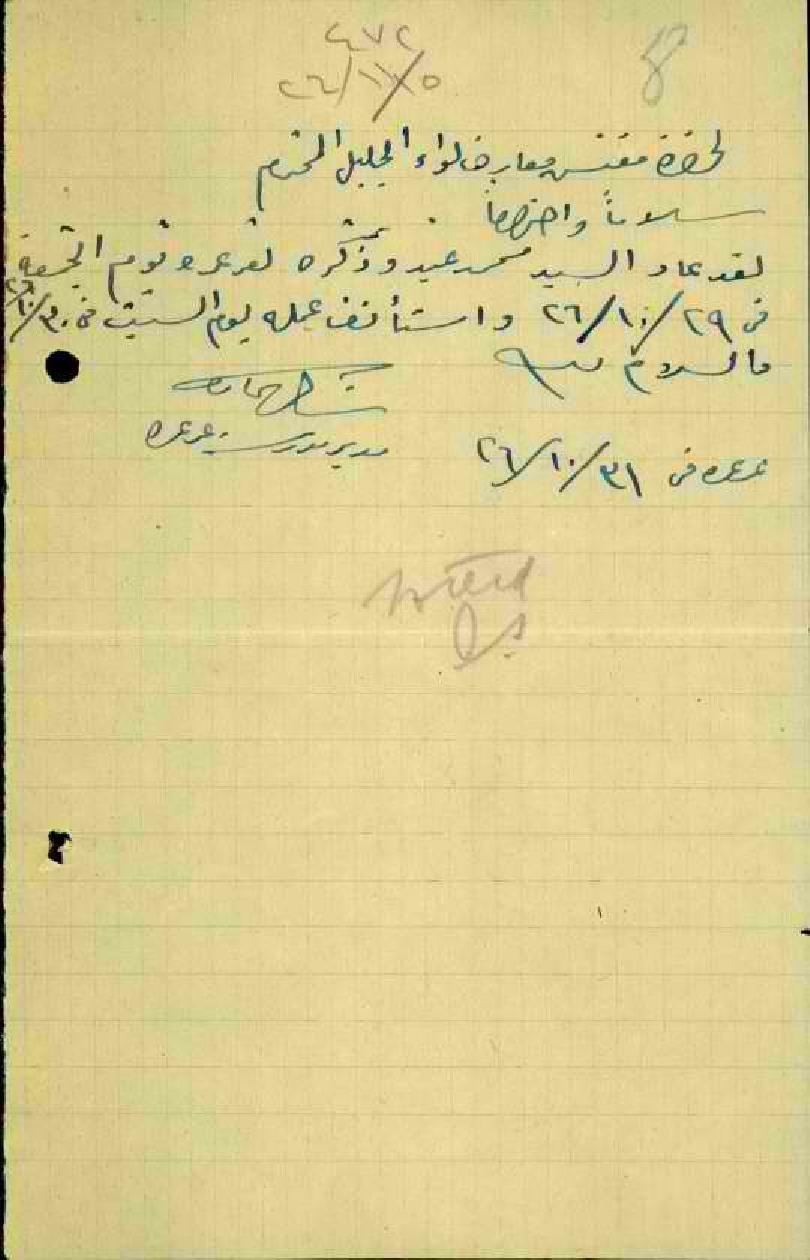 ٤٧٢
٢٦/١١/٥
لحضرة مفتش معارف لواء الجليل المحترم
سلاماً واحتراماً
لقد عاد السيد محمد عيد لعرعره يوم الجمعة
في ٢٩/١٠/٢٦ واستأنف عمله يوم السبت في ٣٠/١٠/٢٦
والسلام
مدير مدرسة عرعره
عرعره في ٣١/١٠/٢٦